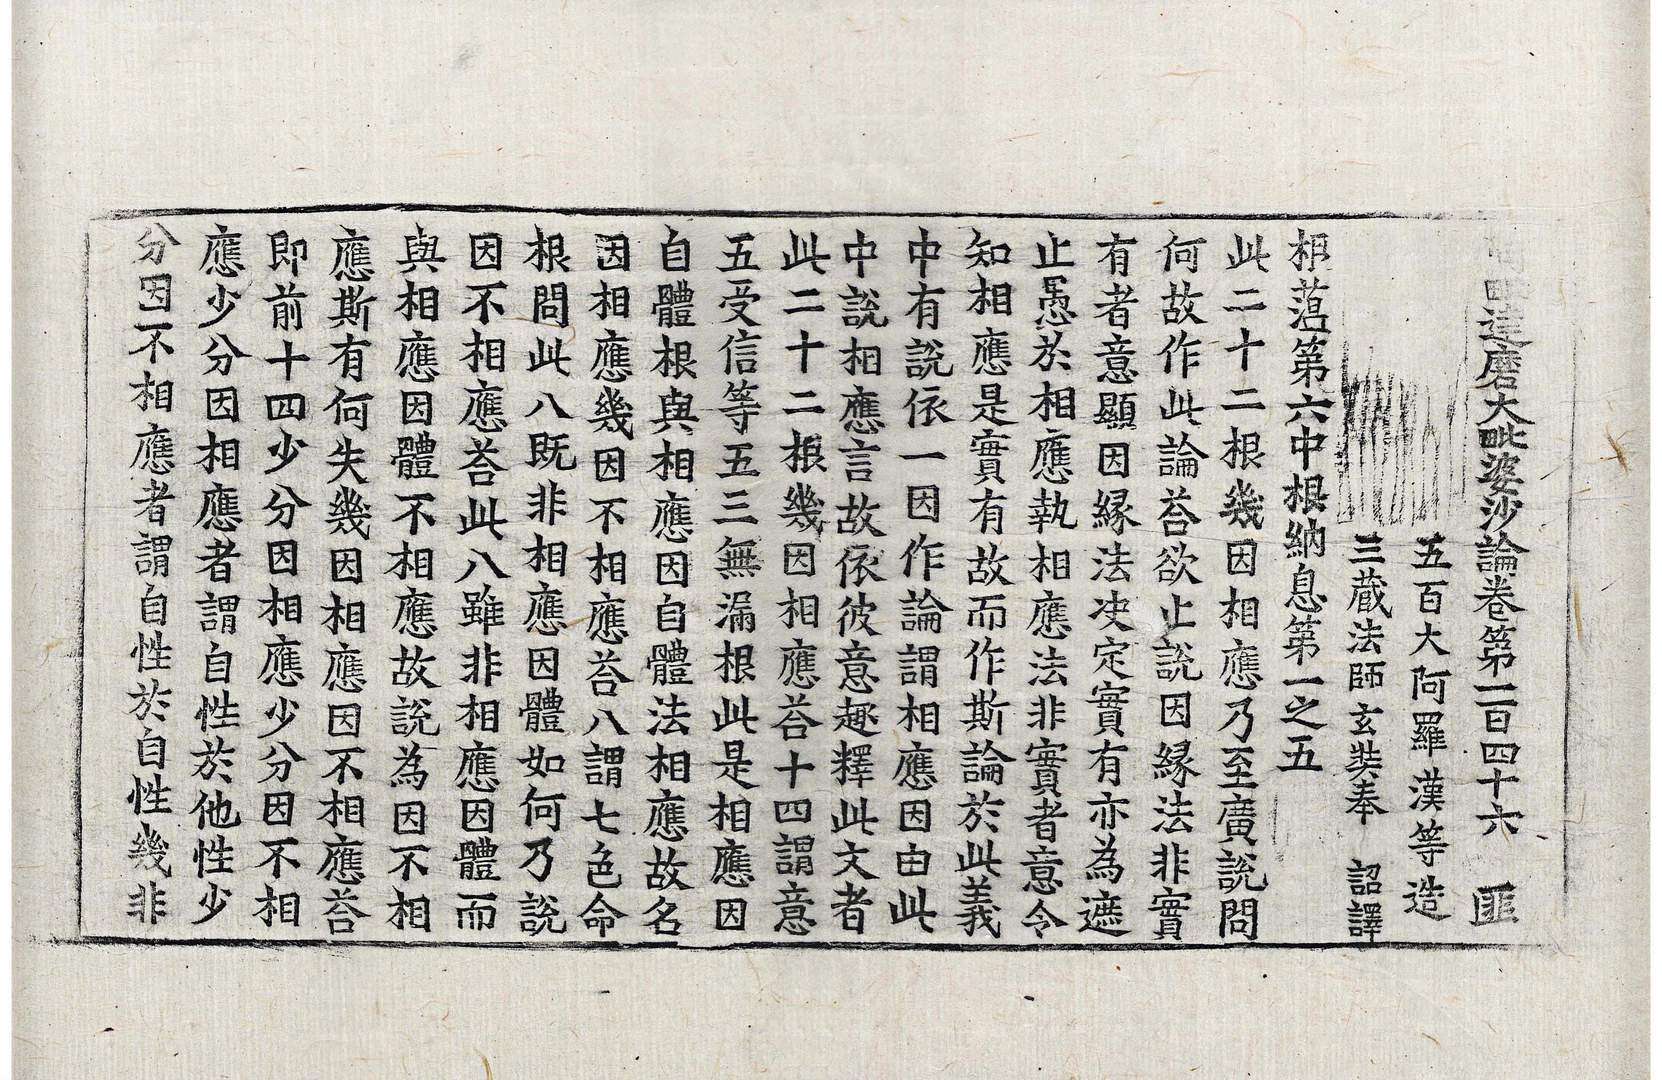 阿毗達磨大毗婆沙論卷第一百四十六 匪
五百大阿羅漢等造
三藏法師玄奘奉 詔譯
根蕅第六中根納息第一之五
此二十二根幾因相應乃至廣說問
何故作此論荅欲止說因緣法非實
有者意顯因緣法決定實有亦為遮
止愚於相應執相應法非實者意令
知相應是實有故而作斯論於此義
中有說依一因作論謂相應因由此
中說相應言故依彼意趣釋此文者
此二十二根幾因相應荅十四謂意
五受信等五三無漏根此是相應因
自體根與相應因自體法相應故名
因相應幾因不相應荅八謂七色命
根問此八既非相應因體如何乃說
因不相應荅此八雖非相應因體而
與相應因體不相應故說為因不相
應斯有何失幾因相應因不相應荅
即前十四少分因相應少分因不相
應少分因相應者謂自性於他性少
分因不相應者謂自性於自性幾非